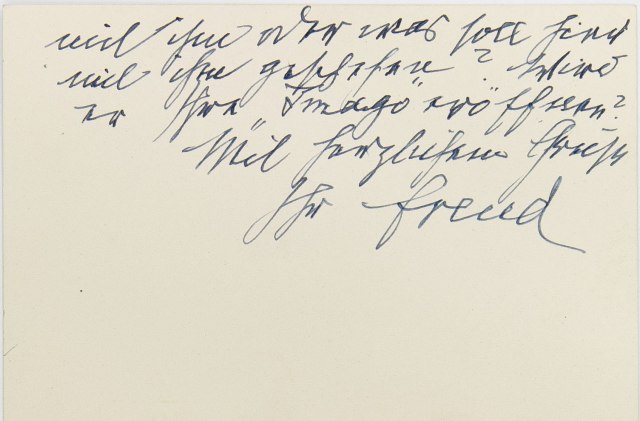 mit ihm oder was soll sonst
mit ihm geschehen? Wird
er Ihre „Imago“ eröffnen?
Mit herzlichem Gruß
Ihr Freud